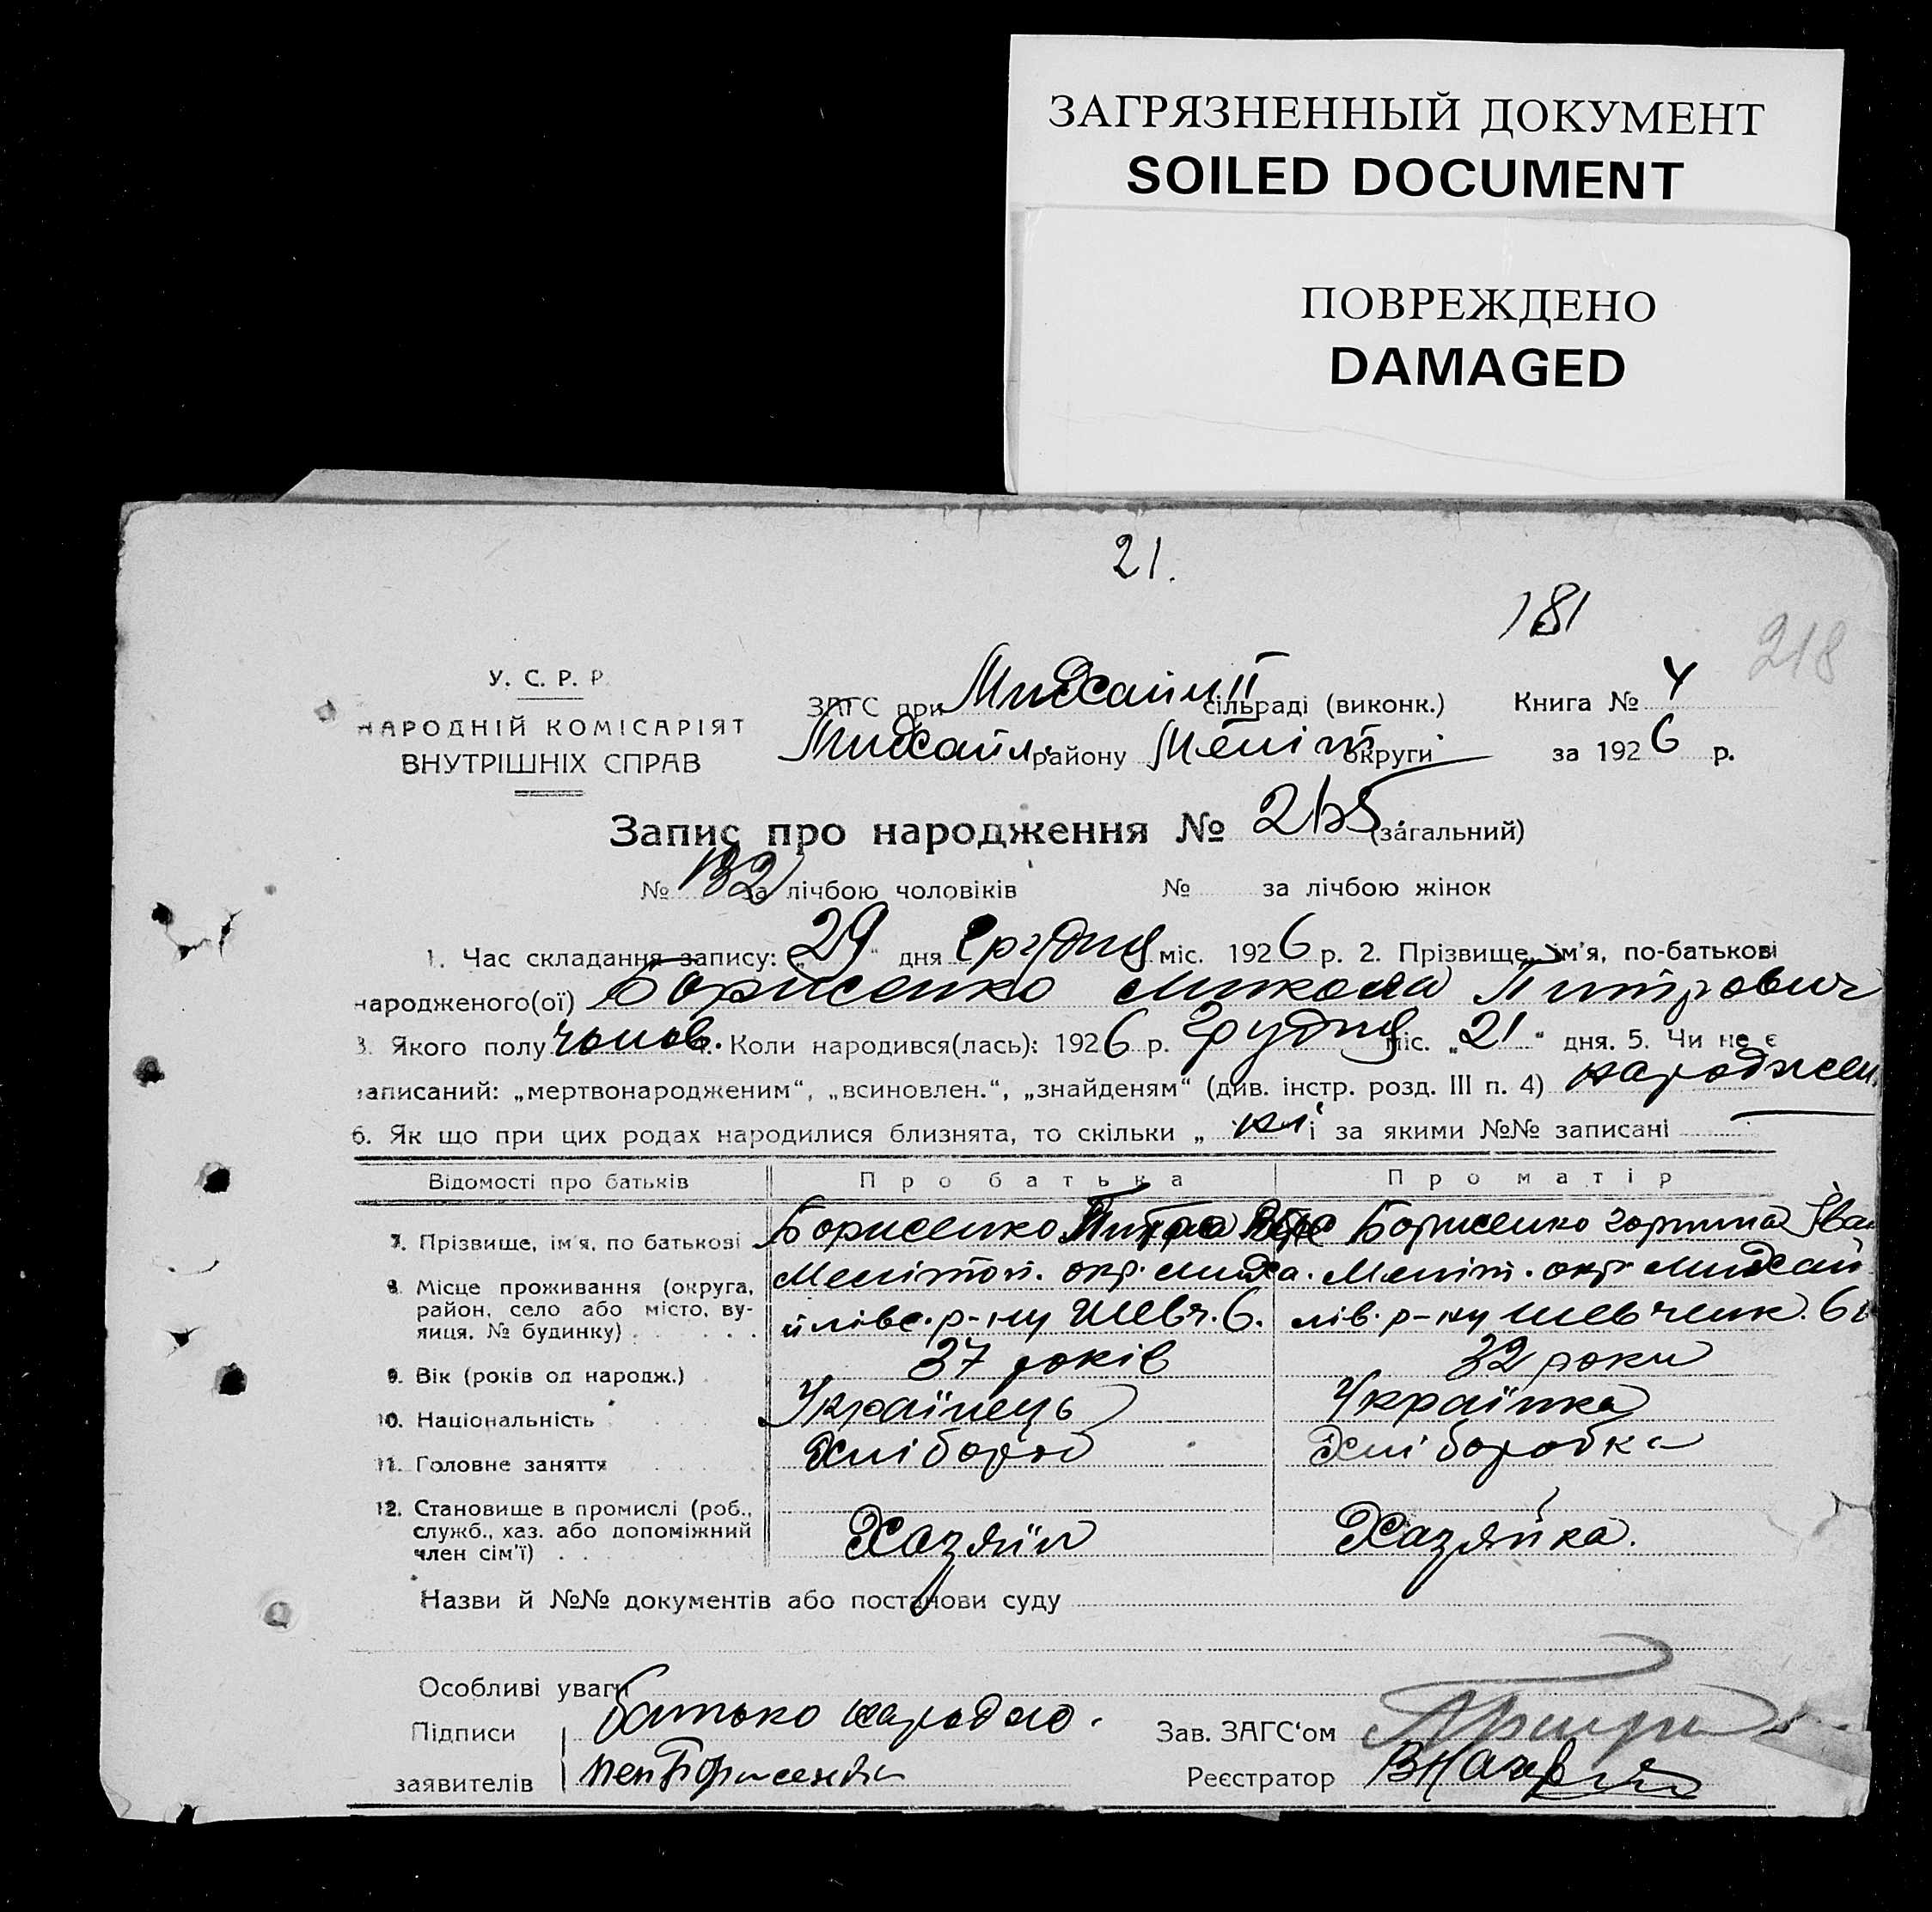 ЗАГРЯЗНЕННЫЙ ДОКУМЕНТ
SOILED DOCUMENT
ПОВРЕЖДЕНО
DAMAGED
21.
181
218
У. С. Р. Р.
НАРОДНІЙ КОМІСАРІЯТ
ВНУТРІШНІХ СПРАВ
ЗАГС при Михайл II сільраді (виконк.) Книга № 4
Михайл. району Меліт округи за 1926 р.
Запис про народження № 215 (загальний)
№ 132 за лічбою чоловіків № за лічбою жінок
1. Час складання запису: „29“ дня Грудня міс. 1926 р. 2. Прізвище, ім'я, по-батькові
народженого(ої) Борисенко Микола Питрович
3. Якого полу чолов. Коли народився(лась): 1926 р. Грудня міс. „21“ дня. 5. Чи не є
записаний: „мертвонародженим“, „всиновлен.“, „знайденям“ (див. інстр. розд. III п. 4) народжен.
6. Як що при цих родах народилися близнята, то скільки „ і за якими №№ записані
Відомості про батьків Про батька Про матір
7. Прізвище, ім'я, по батькові Борисенко Питро Борисенко Горпина Іван
8. Місце проживання (округа, Мелітоп. окр. Миха. Меліт. окр. Михай
район, село або місто, ву-
лиця. № будинку) йлівс. р-ну Шевч. 6. лів. р-ну Шевченк. 6
9. Вік (років од народж.) 37 років 32 роки
10. Національність Українець Українка
11. Головне заняття Хлібороб Хліборобка
12. Становище в промислі (роб.,
служб., хаз. або допоміжний
член сім'ї) Хазяїн Хазяйка.
Назви й №№ документів або постанови суду
Особливі уваги
Підписи батько народжо. Зав. ЗАГС'ом
заявителів Борисенко Реєстратор